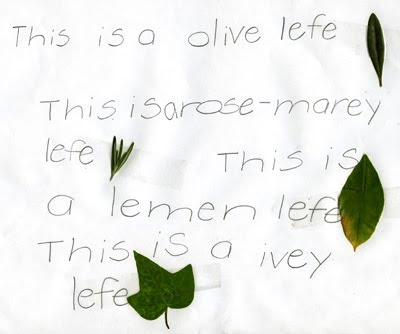 This is a olive lefe
This isarose-marey
lefe This is
a lemen lefe
This is a ivey
lefe